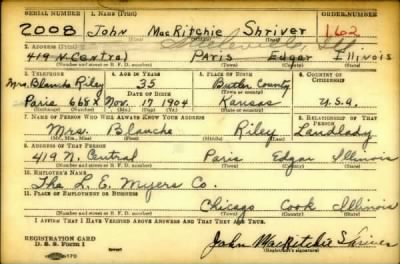 SERIAL NUMBER 1. NAME (Print)
2008 John MacRitchie Shriver 1602
(First) (Middle) (Last)
2. ADDRESS (Print)
419 N. Central Paris Edgar Illinois
(Number and street or R. F. D. number) (Town) (County) (State)
3. TELEPHONE 4. AGE IN YEARS 5. PLACE OF BIRTH 6. COUNTRY OF CITIZENSHIP
Mrs. Blanche Riley 35 Butler County
DATE OF BIRTH (Town or county)
Paris 668X Nov. 17 1904 Kansas U.S.A.
(Exchange) (Number) (Mo.) (Day) (Yr.) (State or country)
7. NAME OF PERSON WHO WILL ALWAYS KNOW YOUR ADDRESS 8. RELATIONSHIP OF THAT PERSON
Mrs. Blanche Riley Landlady
(Mr., Mrs., Miss) (First) (Middle) (Last)
9. ADDRESS OF THAT PERSON
419 N. Central Paris Edgar Illinois
(Number and street or R. F. D. number) (Town) (County) (State)
10. EMPLOYER'S NAME
The L. E. Myers Co.
11. PLACE OF EMPLOYMENT OR BUSINESS
Chicago Cook Illinois
(Number and street or R. F. D. number) (Town) (County) (State)
I AFFIRM THAT I HAVE VERIFIED ABOVE ANSWERS AND THAT THEY ARE TRUE.
REGISTRATION CARD
D. S. S. Form 1 John MacRitchie Shriver
(Registrant's signature)